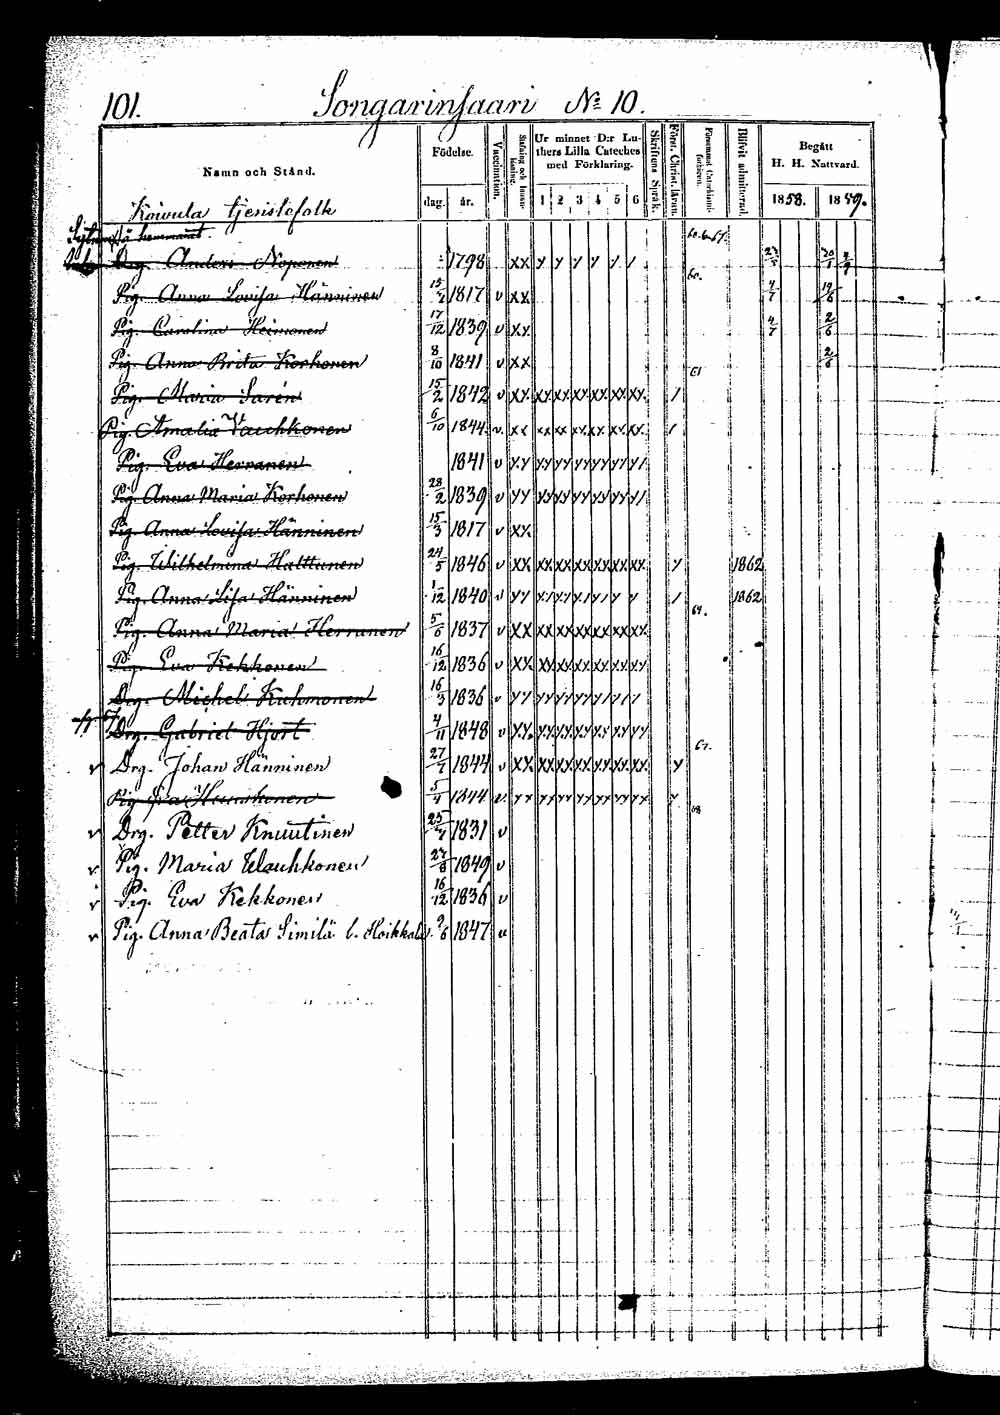 101. Songarinsaari No 10.
Namn och Stånd. Födelse. dag. år. Vaccination. Stafning och Innanläsning. Ur minnet D:r Luthers Lilla Cateches med Förklaring. 1 2 3 4 5 6 Skriftens Språk. Först. Christ. läran. Blifvit admitterad. Begått H. H. Nattvard. 1858. 1859.
Koivula tjenstefolk
å hemmanet.
Drg. Anders Noponen 1798 xx y y y y y / 20/1
Pig. Anna Lovisa Hänninen 15/3 1817 v xx 4/7 19/6
Pig. Carolina Heimonen 17/12 1839 v xx 4/7 2/6
Pig. Anna Brita Korhonen 8/10 1841 v xx 2/6
61
Pig. Maria Sarén 15/2 1842 v xx xx xx xx xx xx xx /
Pig. Amalia Vauhkonen 6/10 1844 v xx xx xx xx xx xx xx /
Pig. Eva Herranen 1841 v yy yy yy yy yy yy y/
Pig. Anna Maria Korhonen 28/2 1839 v yy yy yy yy yy yy y/
Pig. Anna Lovisa Hänninen 15/3 1817 v xx
Pig. Wilhelmina Halttunen 24/5 1846 v xx xx xx xx xx xx xx y 1862
Pig. Anna Lisa Hänninen 1/12 1840 v yy / 1862
64.
Pig. Anna Maria Herranen 5/6 1837 v xx xx xx xx xx xx xx
Pig. Eva Kekkonen 16/12 1836 v xx xx xx xx xx xx xx
Drg. Michel Kuhmonen 16/3 1836 v yy
Drg. Gabriel Hjort 4/11 1848 v xx xx xx xx xx xx yy
67.
v Drg. Johan Hänninen 27/7 1844 v xx xx xx xx xx xx xx y
Pig 5/4 1844 v yy yy yy yy yy yy yy y
68
v Drg. Petter Knuutinen 25/7 1831 v
v Pig. Maria Wauhkonen 27/8 1849 v
v Pig. Eva Kekkonen 16/12 1836 v
v Pig. Anna Beata Similä 1847 v